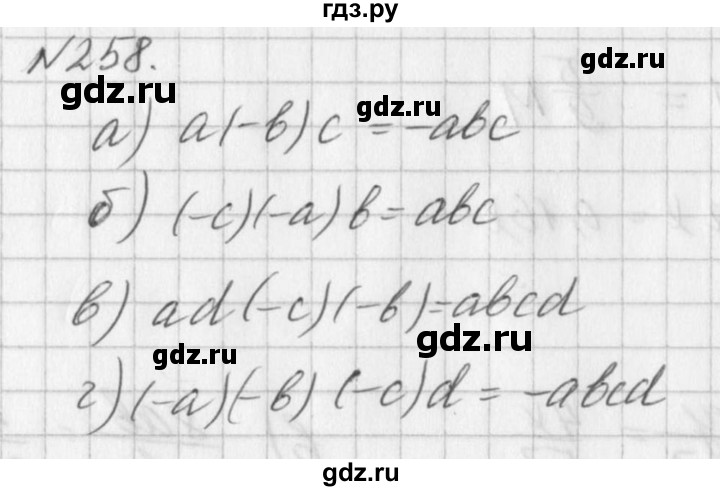 гдз.ру
№258.
gdz.ru
gdz.ru
gdz.ru
а) a(-b)c = -abc
б) (-c)(-a)b = abc
в) ad(-c)(-b) = abcd
gdz.ru
gdz.ru
г) (-a)(-b)(-c)d = -abcd
gdz.ru